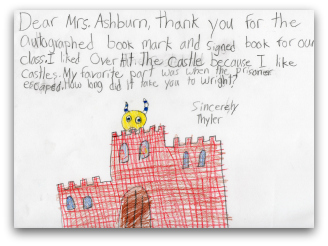 Dear Mrs. Ashburn, thank you for the
autographed book mark and signed book for our
class. I liked Over At The Castle because I like
castles. My favorite part was when the prisoner
escaped. how long did it take you to wright?
Sincerely
Thyler